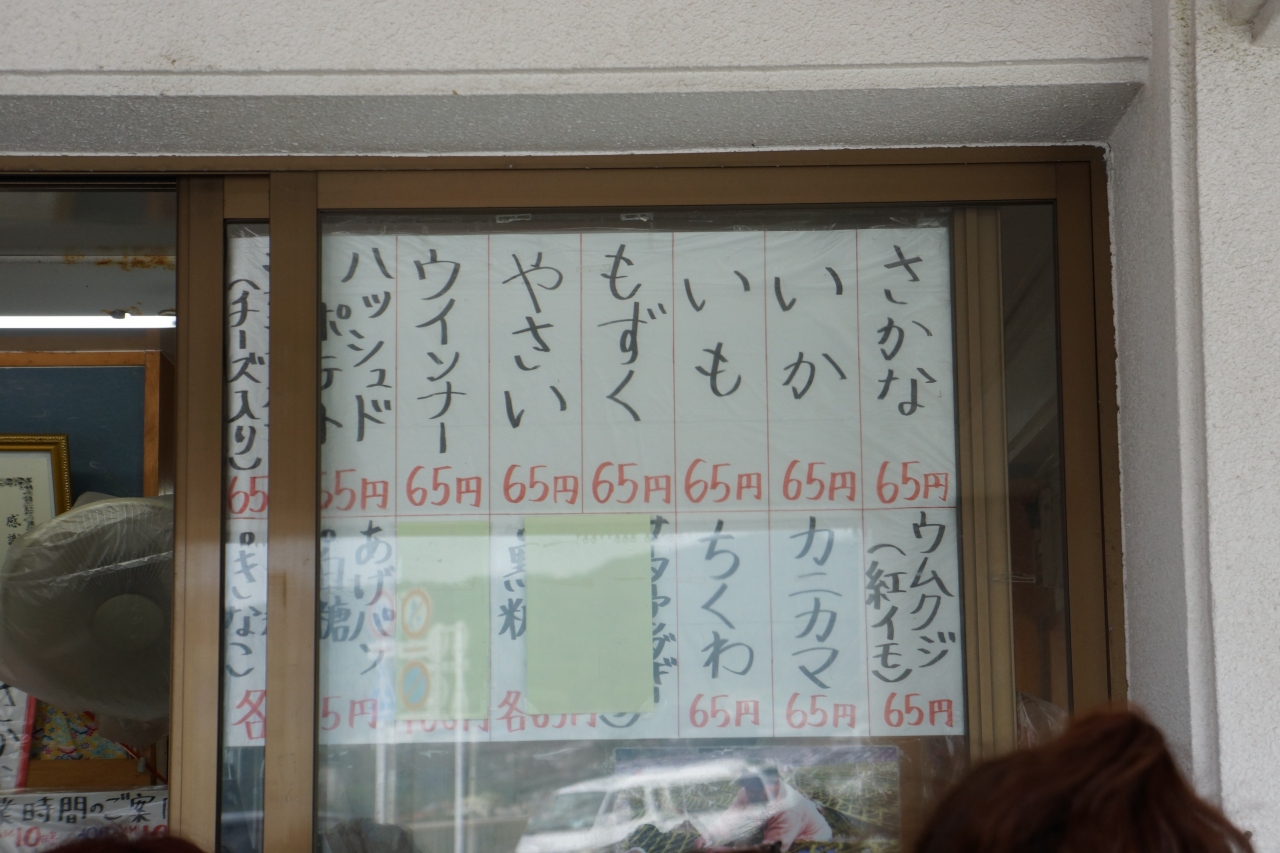 さかな
65円
いか
65円
いも
65円
もずく
65円
やさい
65円
ウインナー
65円
ハッシュド
ポテト
65円
(チーズ入り)
65
ウムクジ
(紅イモ)
65円
カニカマ
65円
ちくわ
65円
サタアンダギー
黒糖
各65円
100円
あげパン
白糖
5円
きなこ
各
業時間のご案内